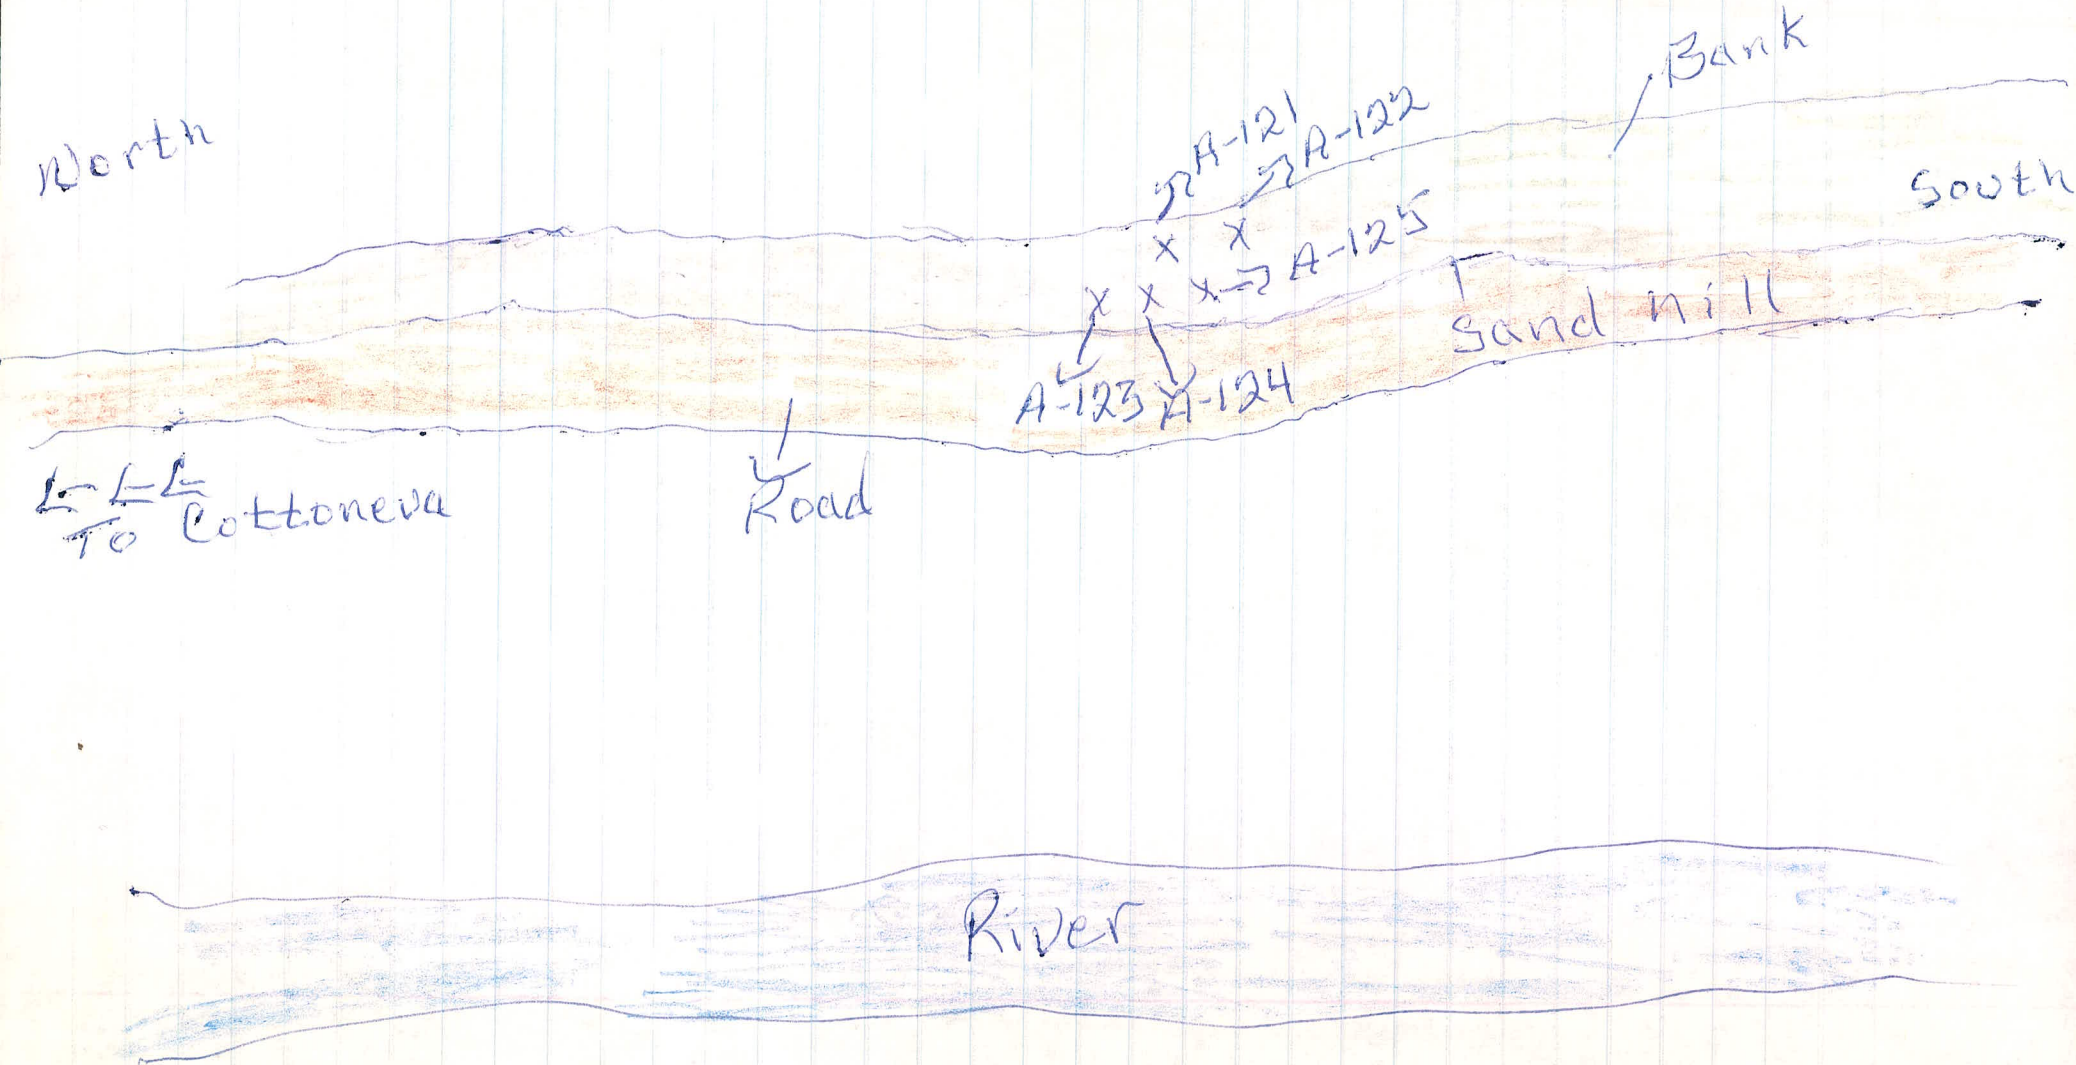 Bank
North
A-121
A-122
South
A-125
Sand hill
A-123
A-124
To Cottoneva
Road
River